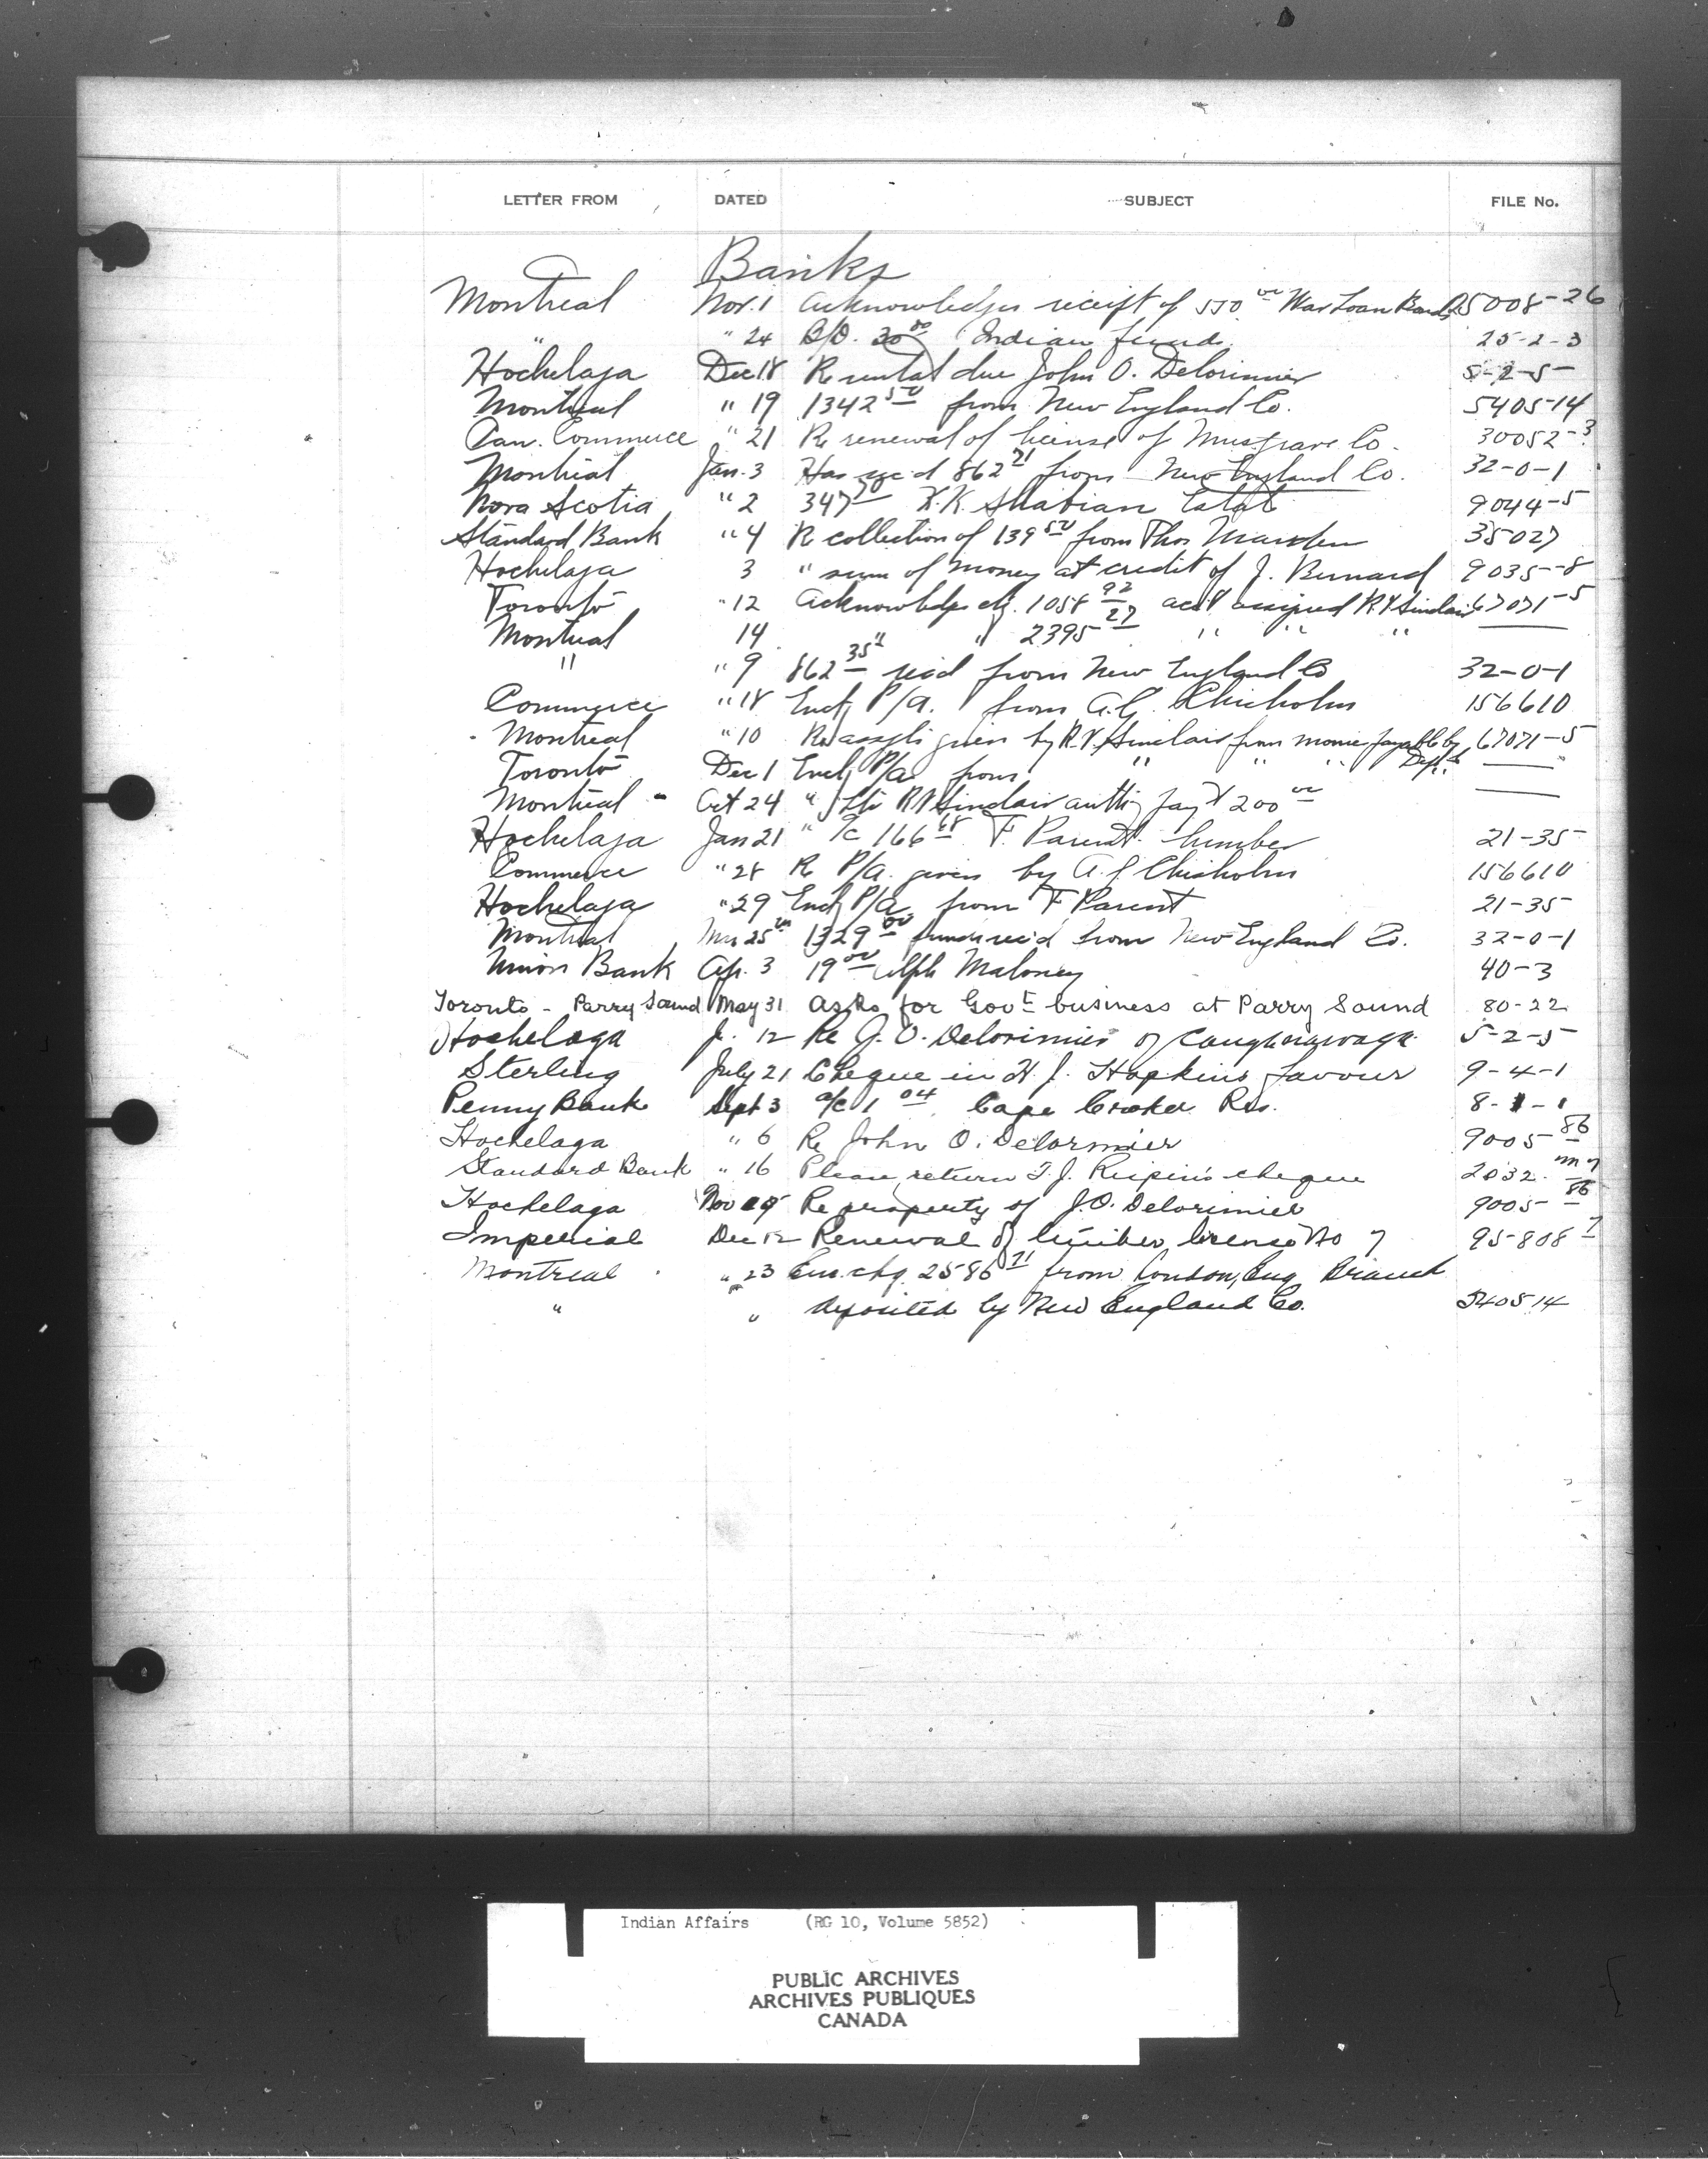 LETTER FROM DATED SUBJECT FILE No.
Banks
Montreal Nov. 1 Acknowledges receipt of 550.00 War Loan Bonds 25008-26
" " 24 B/D. 30.00 Indian fund. 25-2-3
Hochelaga Dec 18 Re rental due John O. Delorimier 5-2-5
Montreal " 19 1342 50 from New England Co. 5405-14
Can. Commerce " 21 Re renewal of license of Musgrave Co. 30052-3
Montreal Jan. 3 Has rec'd 862 71 from New England Co. 32-0-1
Nova Scotia " 2 347 K.K. Estate 9044-5
Standard Bank " 4 Re collection of 139 50 from Thos 35027
Hochelaga 3 " sum of money at credit of J. Bernard 9035-8
Toronto " 12 Acknowledges chq. 1058 92 acct assigned R V Sinclair 67071-5
Montreal 14 " " 2395 27 " " "
" " 9 862 35 recd from New England Co 32-0-1
Commerce " 18 Encl P/A. from A.G. Chisholm 156610
Montreal " 10 Re assgts given by R.V. Sinclair from monies payable by Dept 67071-5
Toronto Dec 1 Encl P/A from " " " "
Montreal Oct 24 " R V Sinclair 200 00
Hochelaga Jan 21 " 166 68 F. Parent lumber 21-35
Commerce " 28 Re P/A. given by A.G. Chisholm 156610
Hochelaga " 29 Encl P/A from F Parent 21-35
Montreal 25 1329 00 rec'd from New England Co. 32-0-1
Union Bank Ap. 3 19 00 Maloney 40-3
Toronto - Parry Sound May 31 Asks for Govt business at Parry Sound 80-22
Hochelaga J. 12 Re J. O. Delorimier of Caughnawaga 5-2-5
Sterling July 21 Cheque in H. J. Hopkins favour 9-4-1
Penny Bank Sept 3 a/c 1 04 Cape Croker Res. 8-1-1
Hochelaga " 6 Re John O. Delormier 9005-86
Standard Bank " 16 Please return T. J. Rispin's cheque 2032.
Hochelaga Nov Re property of J.O. Delorimier 9005-86
Imperial Dec 12 Renewal of timber license No 7 95-808 7
Montreal " 23 Enc. chq. 2586 71 from London, Eng Branch
" " deposited by New England Co. 5405 14
Indian Affairs (RG 10, Volume 5852)
PUBLIC ARCHIVES
ARCHIVES PUBLIQUES
CANADA